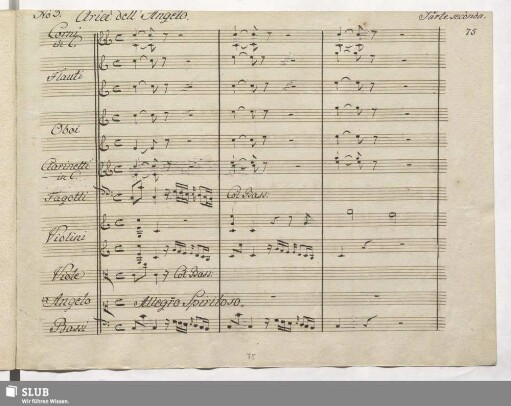 No 5. Aria dell' Angelo. Parte seconda.
75
Corni
in C.
Flauti
Oboi
Clarinetti
in C.
Fagotti Col Bass:
Violini
Viole Col Bass:
Angelo Allegro Spirituoso.
Bassi
75
SLUB
Wir führen Wissen.